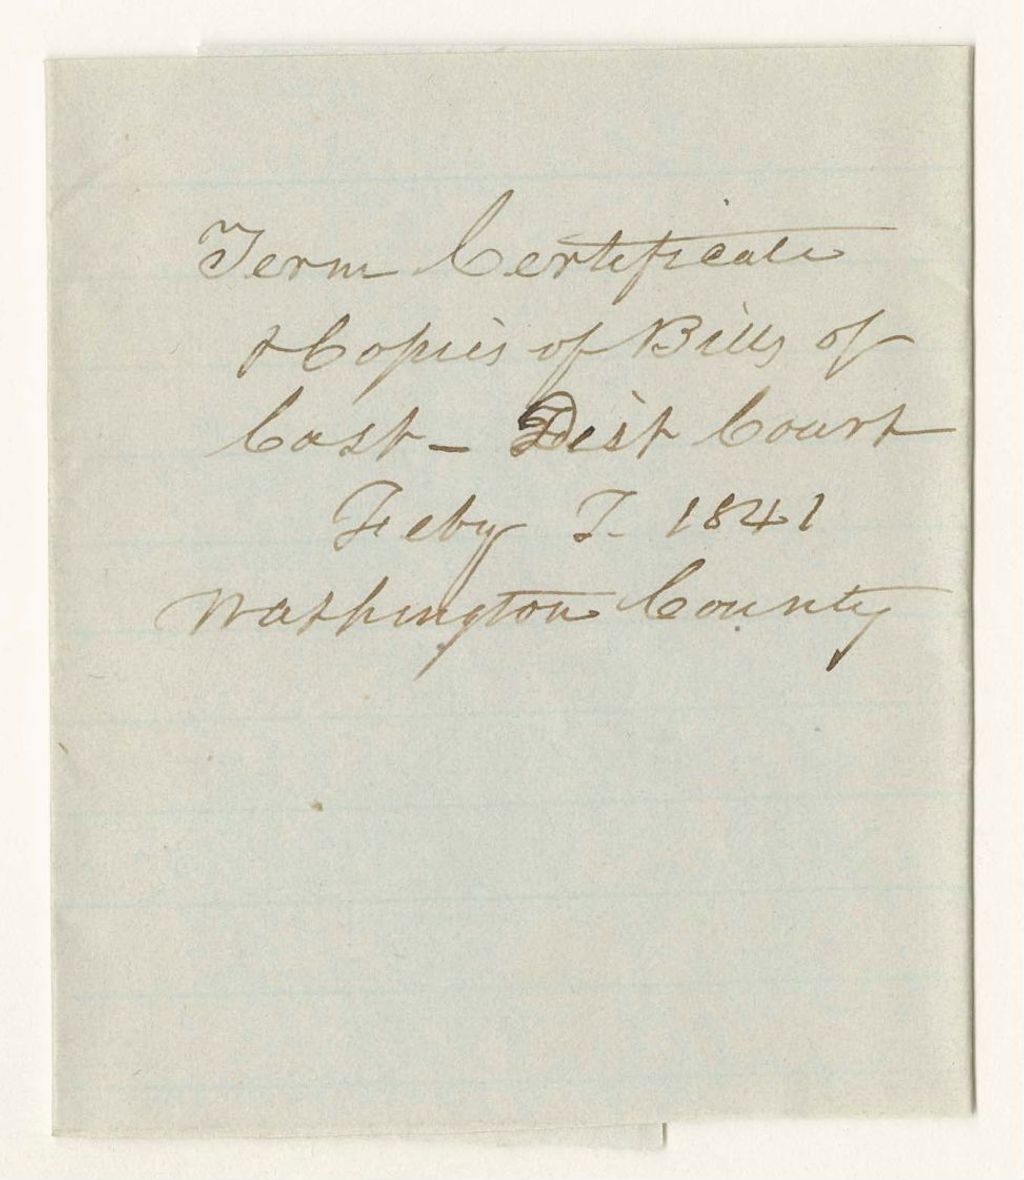 Term Certificate
& Copies of Bills of
Cost - Dist Court
Feby T. 1841
Washington County